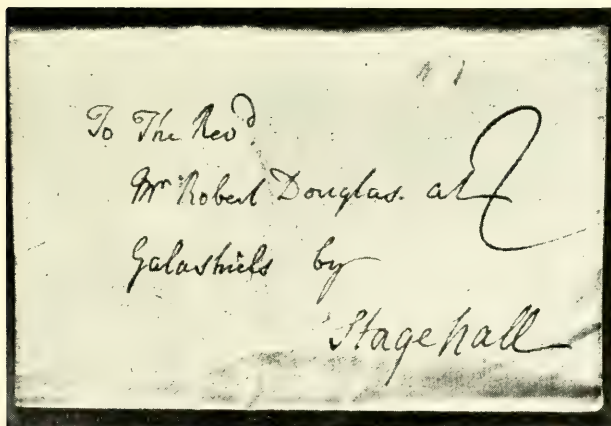 To The Revd.
Mr Robert Douglas. at
Galashiels by
Stagehall